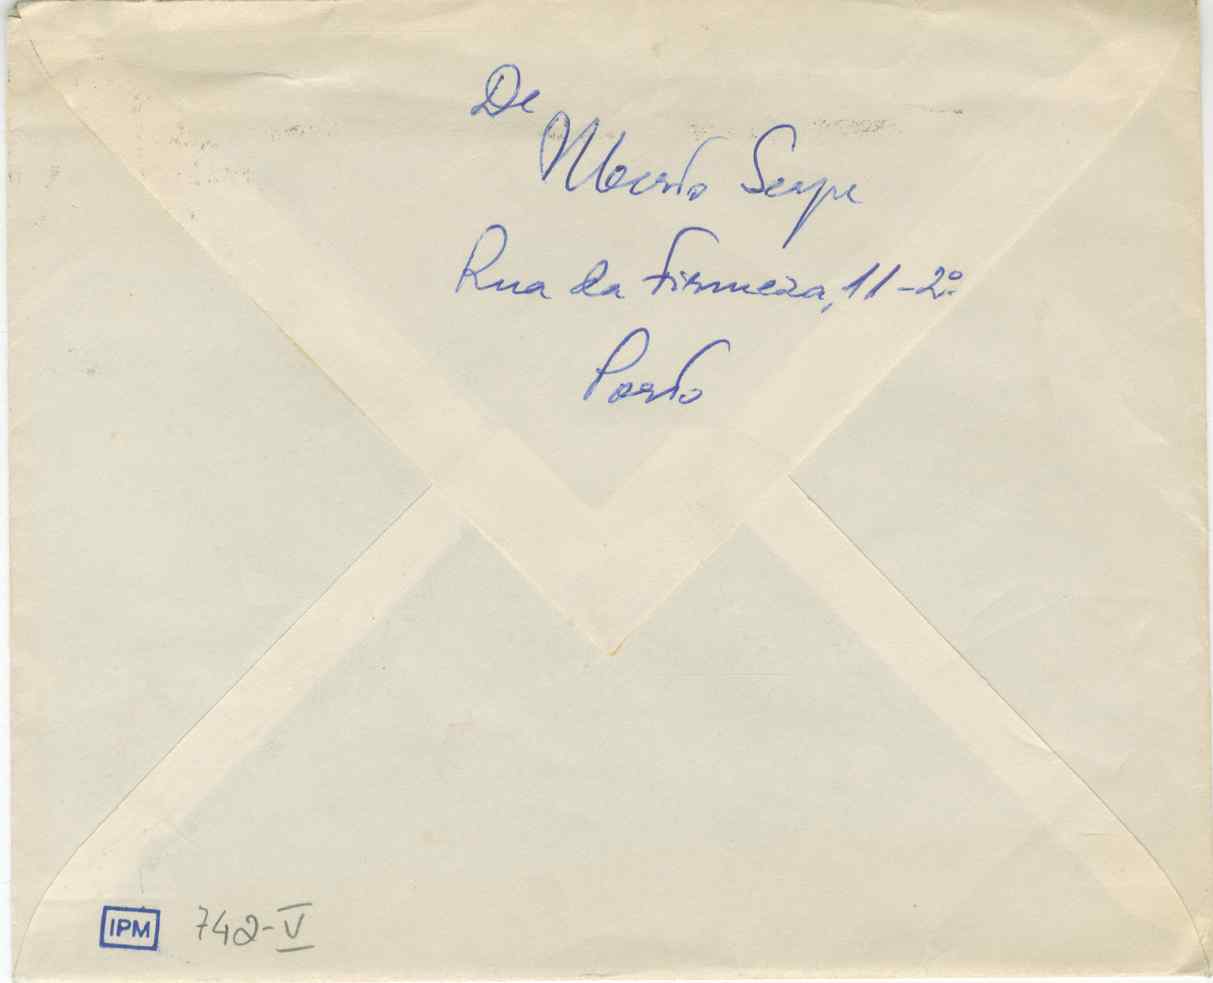 De
Alberto Serpa
Rua da Firmeza, 11-2º
Porto
IPM 742-V